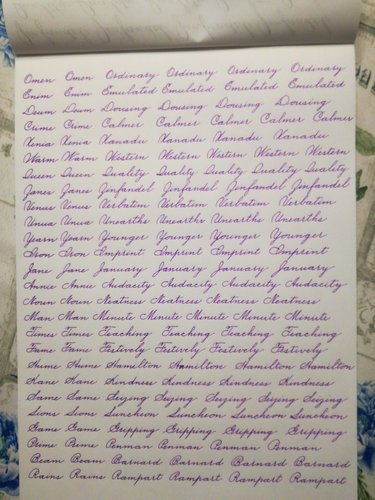 Omen Omen Ordinary Ordinary Ordinary Ordinary
Enim Enim Emulated Emulated Emulated Emulated
Doum Doum Dousing Dousing Dousing Dousing
Crime Crime Calmer Calmer Calmer Calmer
Xenia Xenia Xanadu Xanadu Xanadu Xanadu
Warm Warm Western Western Western Western
Queen Queen Quality Quality Quality Quality Quality
Zanes Zanes Zinfandel Zinfandel Zinfandel Zinfandel
Venus Venus Verbatim Verbatim Verbatim Verbatim
Unua Unua Unearths Unearths Unearths Unearths
Yearn Yearn Younger Younger Younger Younger
Iron Iron Imprint Imprint Imprint Imprint
Jane Jane January January January January
Annie Annie Audacity Audacity Audacity Audacity
Noun Noun Neatness Neatness Neatness Neatness
Man Man Minute Minute Minute Minute Minute
Times Times Teaching Teaching Teaching Teaching
Fame Fame Festively Festively Festively Festively
Hume Hume Hamilton Hamilton Hamilton Hamilton
Kane Kane Kindness Kindness Kindness Kindness
Same Same Seizing Seizing Seizing Seizing Seizing
Lions Lions Luncheon Luncheon Luncheon Luncheon
Game Game Gripping Gripping Gripping Gripping
Penman Penman Penman Penman
Beam Beam Barnard Barnard Barnard Barnard
Rains Rains Rampart Rampart Rampart Rampart